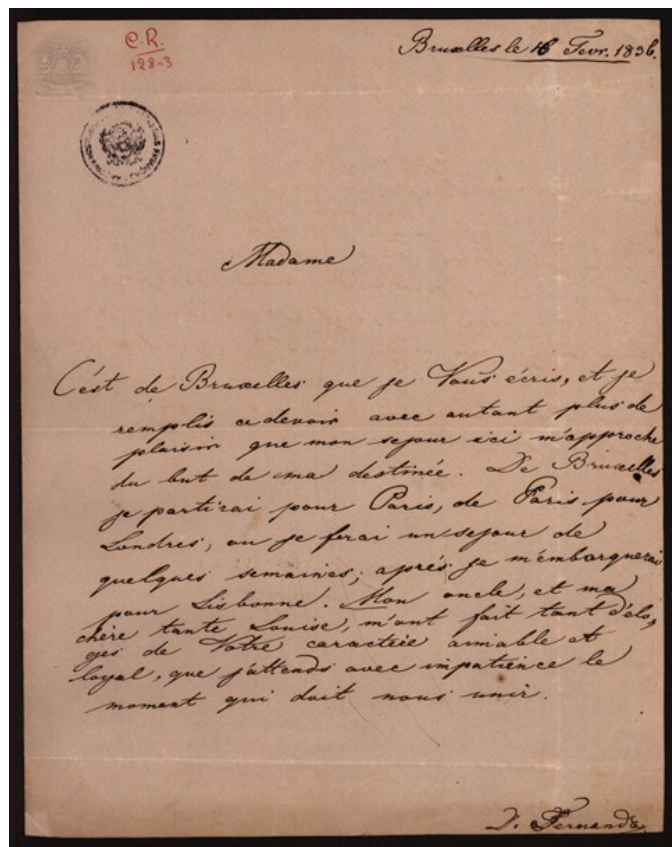 C.R.
128-3
Bruxelles le 16 Fevr. 1836.
Madame
C'est de Bruxelles que je Vous écris, et je
remplis ce devoir avec autant plus de
plaisir que mon sejour ici m'approche
du but de ma destinée. De Bruxelles
je partirai pour Paris, de Paris pour
Londres, ou je ferai un sejour de
quelques semaines; aprés je m'embarquerai
pour Lisbonne. Mon oncle, et ma
chère tante Louise, m'ont fait tant d'élo-
ges de Votre caractére amiable et
loyal, que j'attends avec impatience le
moment qui doit nous unir.
D. Fernando